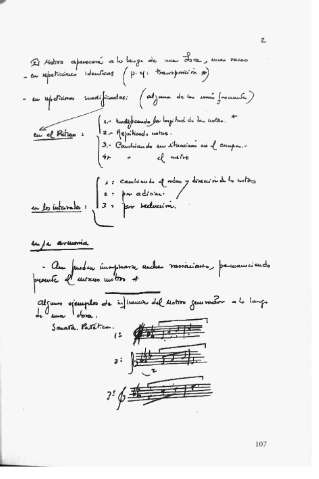 2
El Motivo aparecerá a lo largo de una Obra, unas veces
- en repeticiones idénticas (p. ej: transposición *)
- en repeticiones modificadas: (alguna de las más frecuente)
en el Ritmo:
1.- modificando la longitud de las notas. *
2.- Repitiendo notas.
3.- Cambiando su situación en el compás.
4.- " el metro
en los intervalos:
1: cambiando el orden y dirección de las notas
2 - por adición.
3: por reducción.
en la armonía
- Aun pueden imaginarse muchas variaciones, permaneciendo
presente el mismo motivo *
Algunos ejemplos de influencia del Motivo generador a lo largo
de una obra.
Sonata Patética.
1º
2º
3º
107